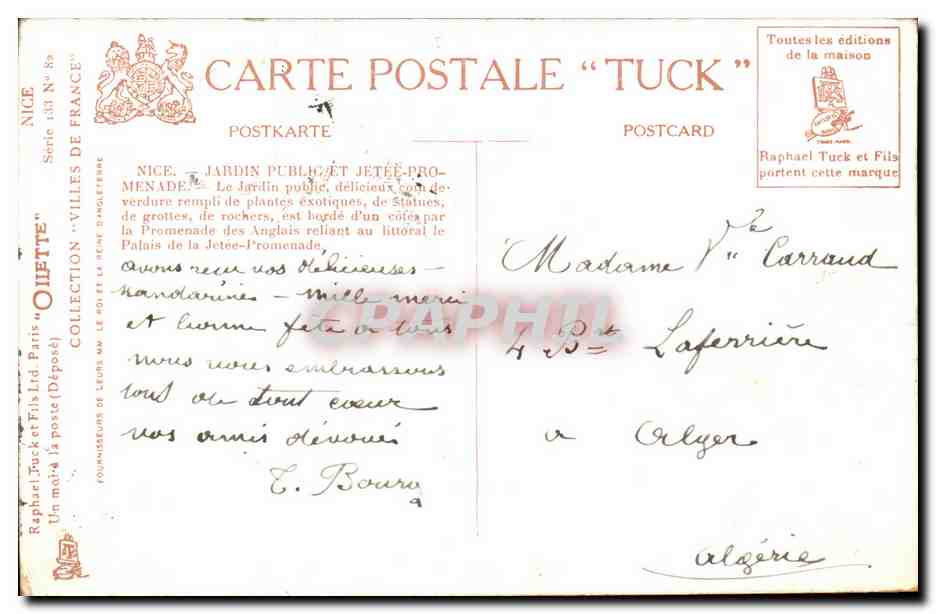 CARTE POSTALE "TUCK"
POSTKARTE
POSTCARD
Toutes les éditions
de la maison
Raphael Tuck et Fils
portent cette marque
NICE
Série 133 No 82
COLLECTION "VILLES DE FRANCE"
FOURNISSEURS DE LEURS MM. LE ROI ET LA REINE D'ANGLETERRE
Raphael Tuck et Fils Ltd. Paris "OILETTE"
Un mot à la poste (Déposé)
NICE. — JARDIN PUBLIC ET JETÉE-PRO-
MENADE. — Le Jardin public, délicieux coin de
verdure rempli de plantes éxotiques, de statues,
de grottes, de rochers, est bordé d'un côté par
la Promenade des Anglais reliant au littoral le
Palais de la Jetée-Promenade.
avons reçu vos délicieuses
mandarines — mille merci
et bonne fête a tous
nous vous embrassons
tous de tout coeur
vos amis dévoués
T. Bourg
Madame Vve Carraud
4 Bt Laferrière
a Alger
Algérie
CPAPHIL